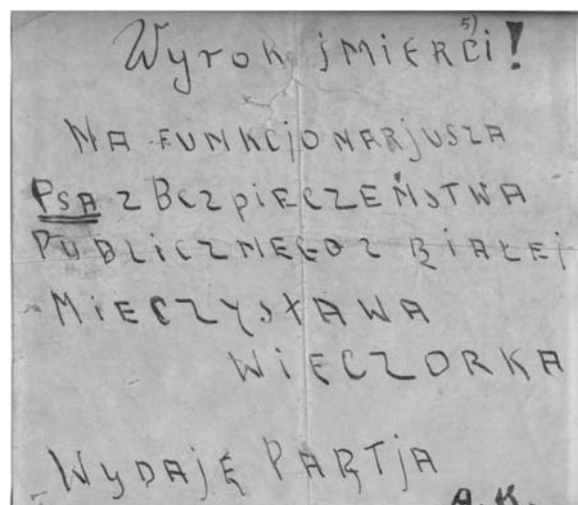 Wyrok śMiERCi!
5)
NA FUNKCjONARjUSZA
PSA Z BEZPiECZEŃSTWA
PUBLiCZNEGO Z BiAŁEj
MiECZYSŁAWA
WiECZORKA
WYDAjĘ PARTjA
A.K.